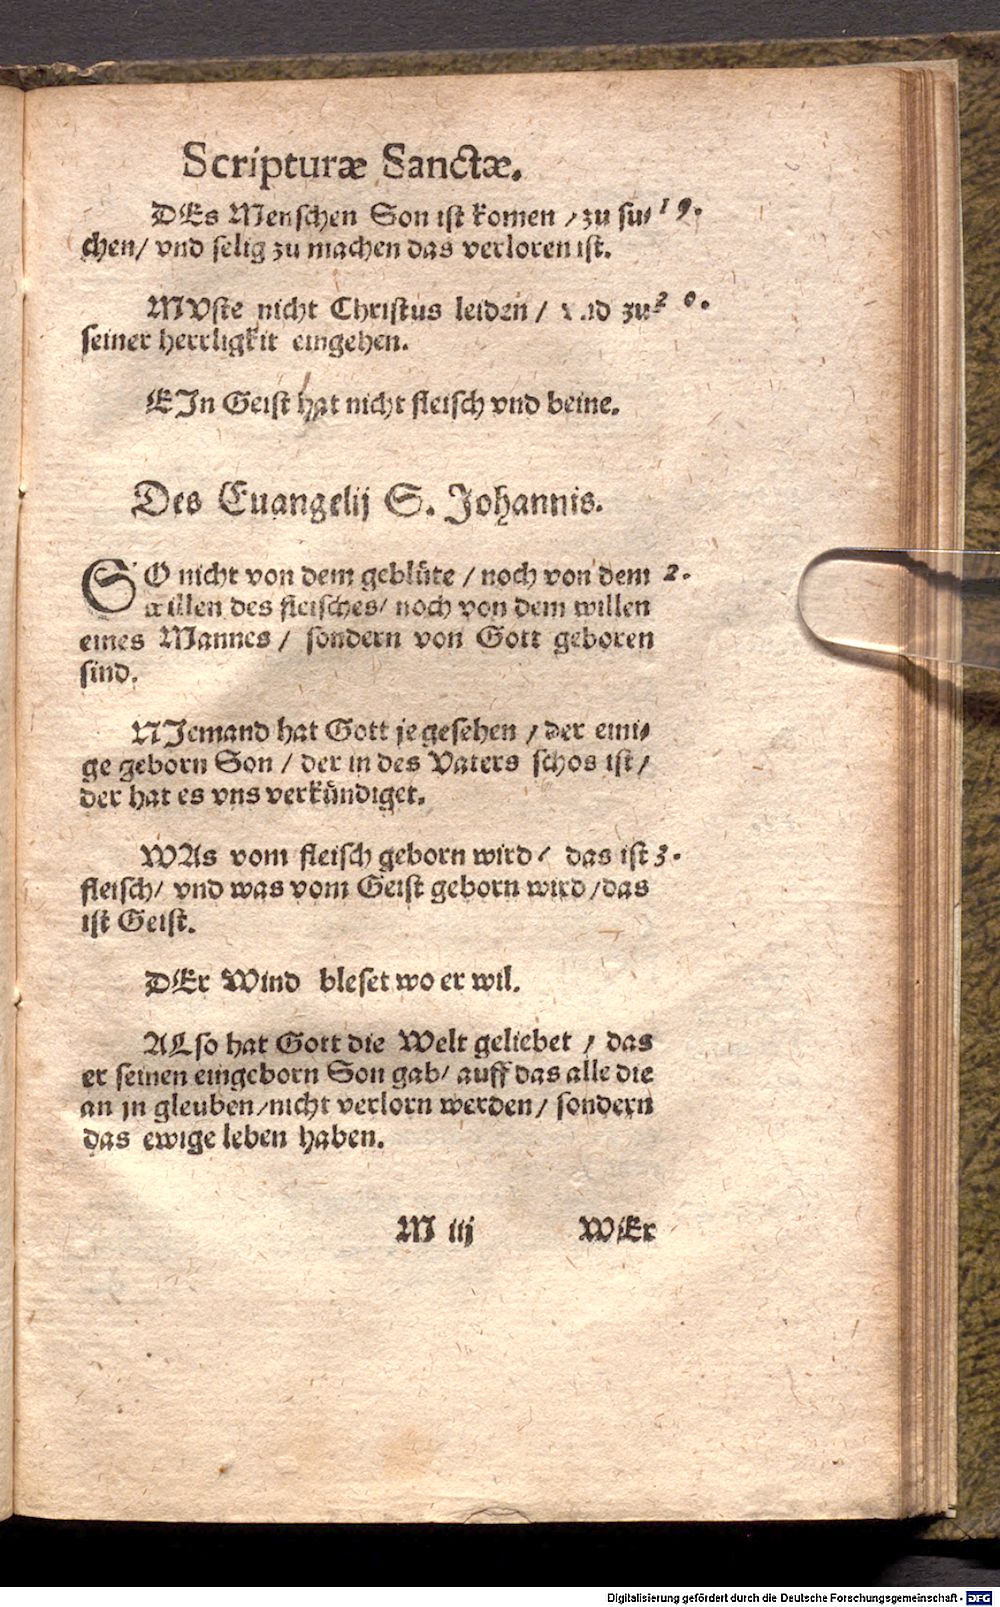 Scripturæ Sanctæ.
DEs Menschen Son ist komen / zu su- 19.
chen/ vnd selig zu machen das verloren ist.
MVste nicht Christus leiden / vnd zu 20.
seiner herrligkit eingehen.
EIn Geist hat nicht fleisch vnd beine.
Des Euangelij S. Johannis.
SO nicht von dem geblüte / noch von dem 2.
willen des fleisches/ noch von dem willen
eines Mannes / sondern von Gott geboren
sind.
NIemand hat Gott je gesehen / der eini-
ge geborn Son / der in des Vaters schos ist /
der hat es vns verkündiget.
WAs vom fleisch geborn wird / das ist 3.
fleisch/ vnd was vom Geist geborn wird /das
ist Geist.
DEr Wind bleset wo er wil.
ALso hat Gott die Welt geliebet / das
er seinen eingeborn Son gab/ auff das alle die
an jn gleuben/nicht verlorn werden/ sondern
das ewige leben haben.
M iij WEr
Digitalisierung gefördert durch die Deutsche Forschungsgemeinschaft - DFG